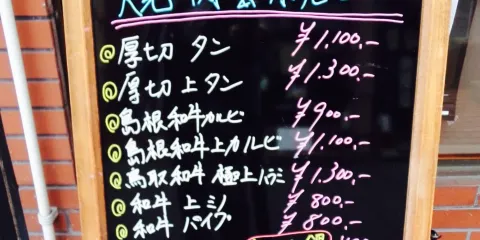 厚切 タン ¥1,100,-
厚切 上タン ¥1,300,-
島根和牛カルビ ¥900,-
島根和牛上カルビ ¥1,100,-
鳥取和牛 極上ハラミ ¥1,300,-
和牛 上ミノ ¥800,-
和牛 パイプ ¥800,-